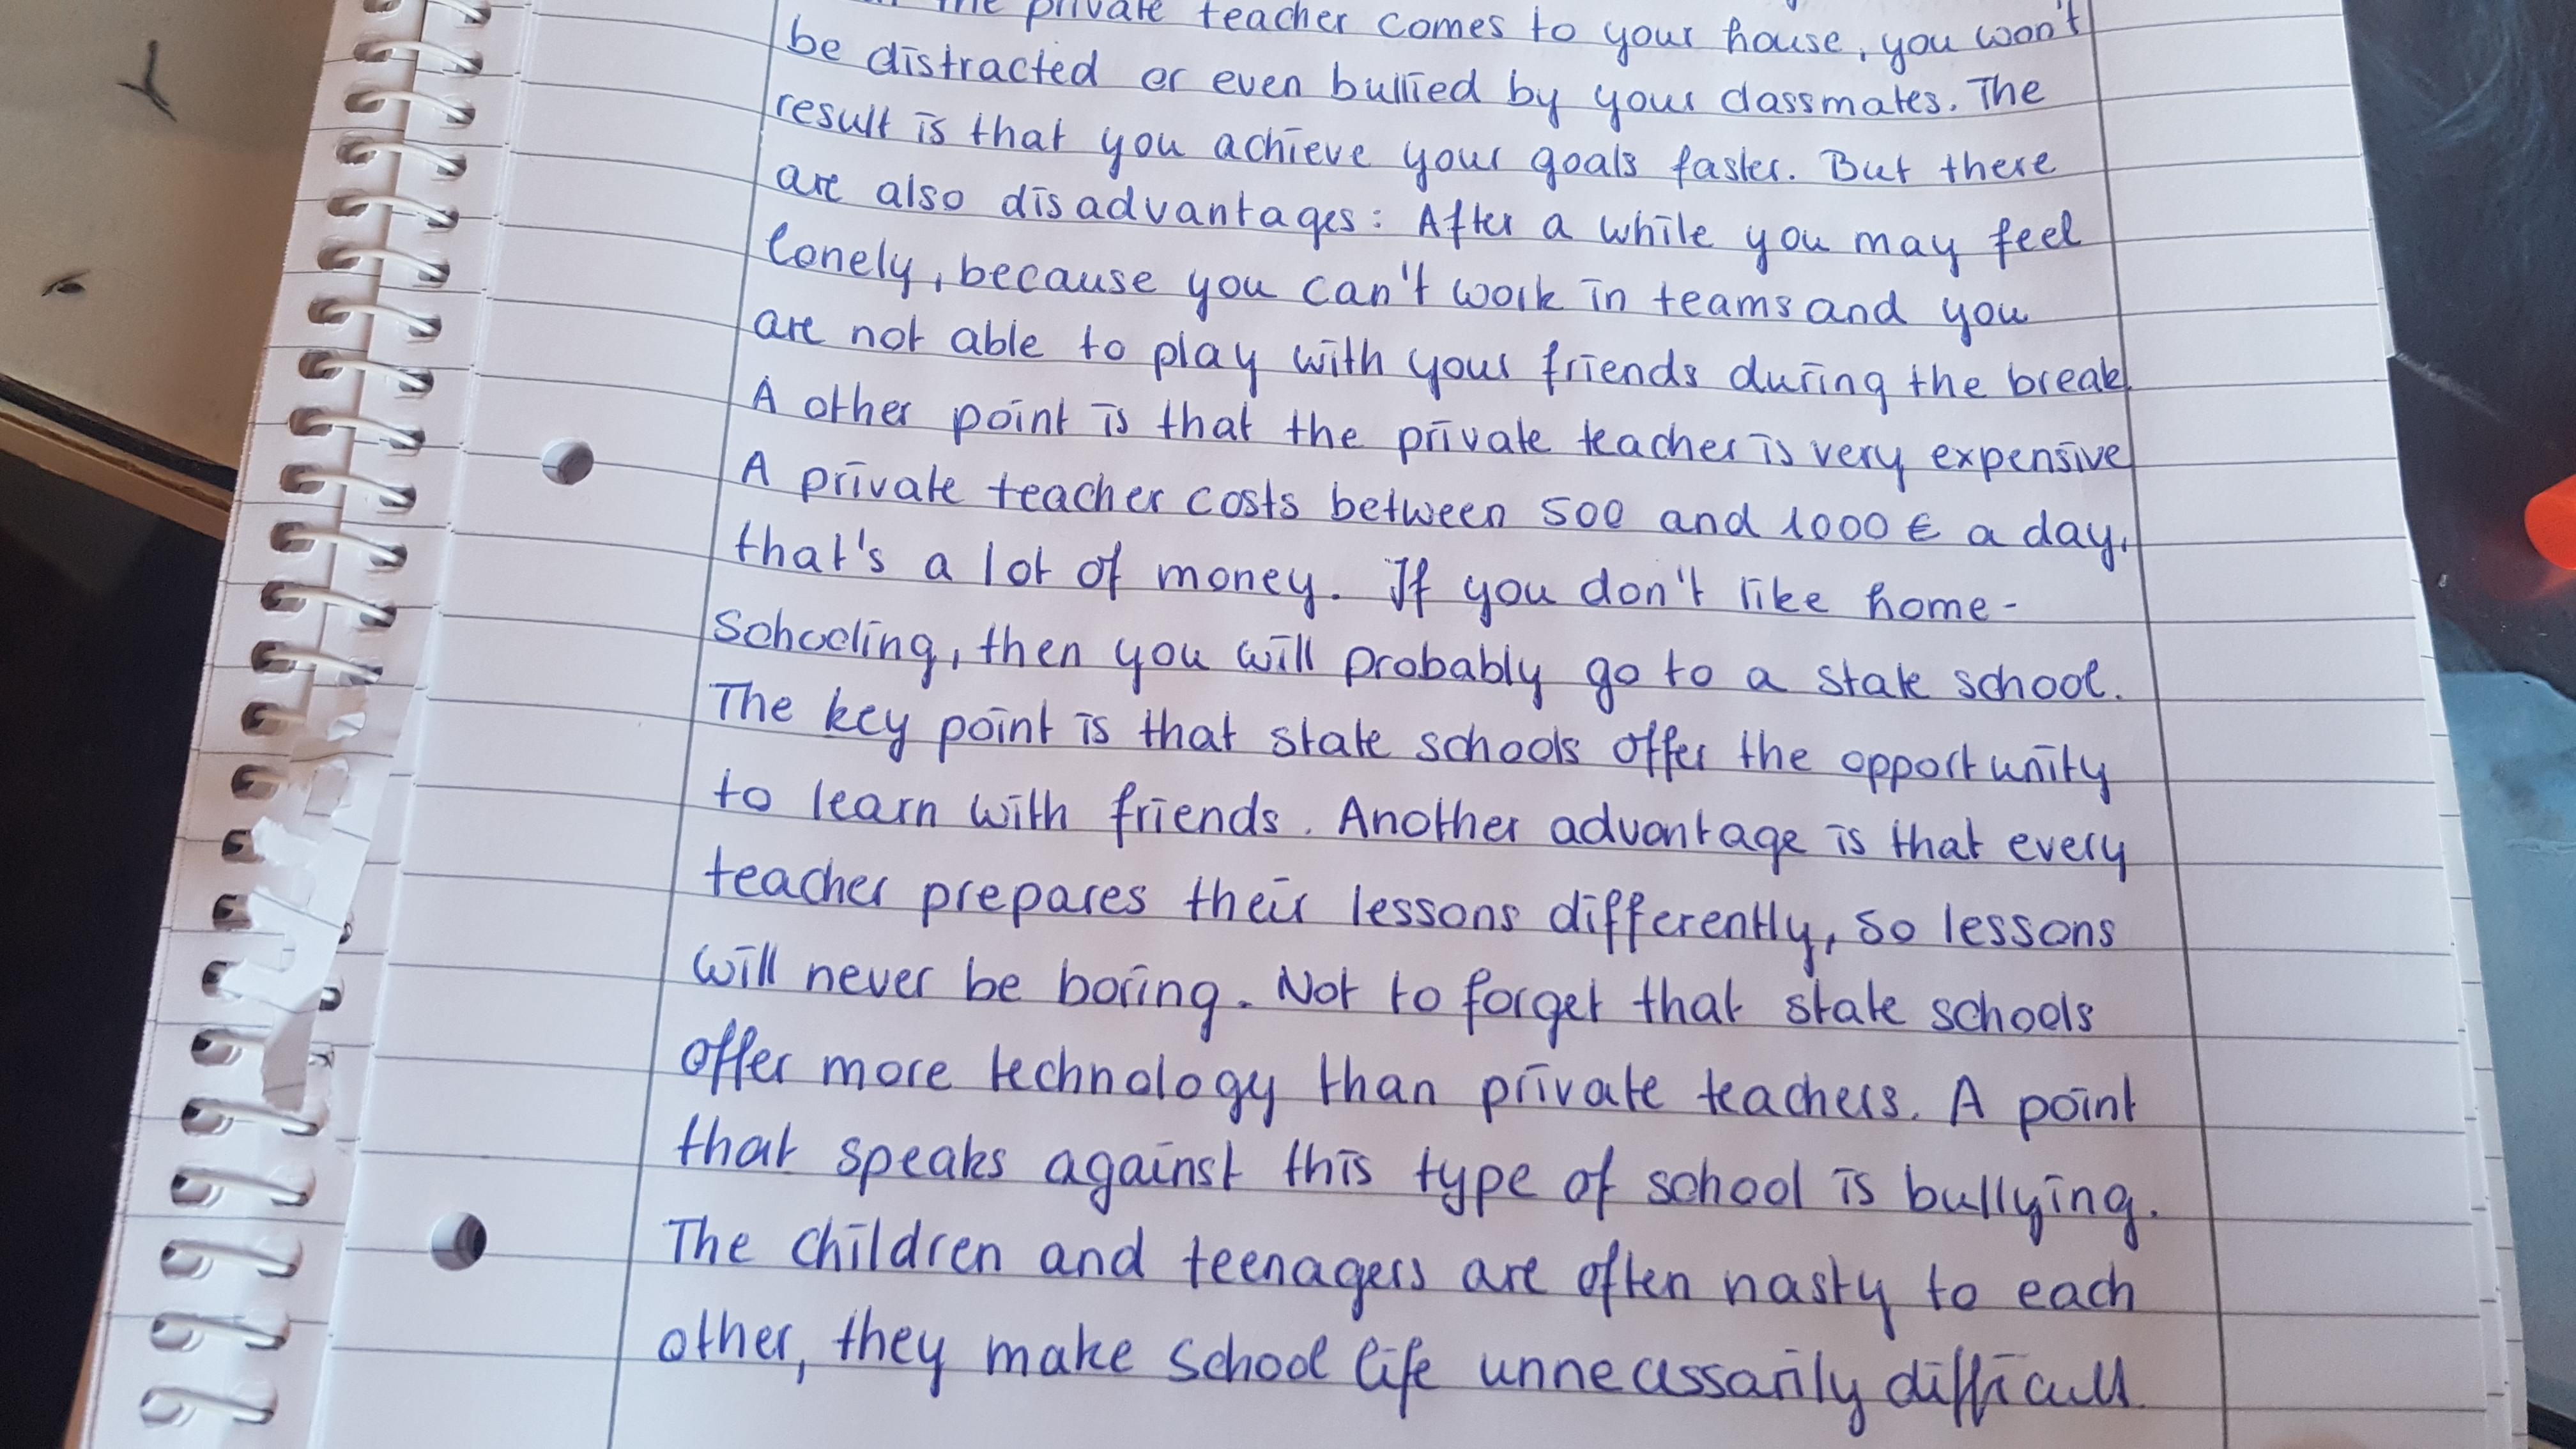 the private teacher comes to your house, you won't
be distracted or even bullied by your classmates. The
result is that you achieve your goals faster. But there
are also disadvantages: After a while you may feel
lonely, because you can't work in teams and you
are not able to play with your friends during the break
A other point is that the private teacher is very expensive
A private teacher costs between 500 and 1000 € a day,
that's a lot of money. If you don't like home-
schooling, then you will probably go to a state school.
The key point is that state schools offer the opportunity
to learn with friends. Another advantage is that every
teacher prepares their lessons differently, so lessons
will never be boring. Not to forget that state schools
offer more technology than private teachers. A point
that speaks against this type of school is bullying.
The children and teenagers are often nasty to each
other, they make school life unnecessarily difficult.